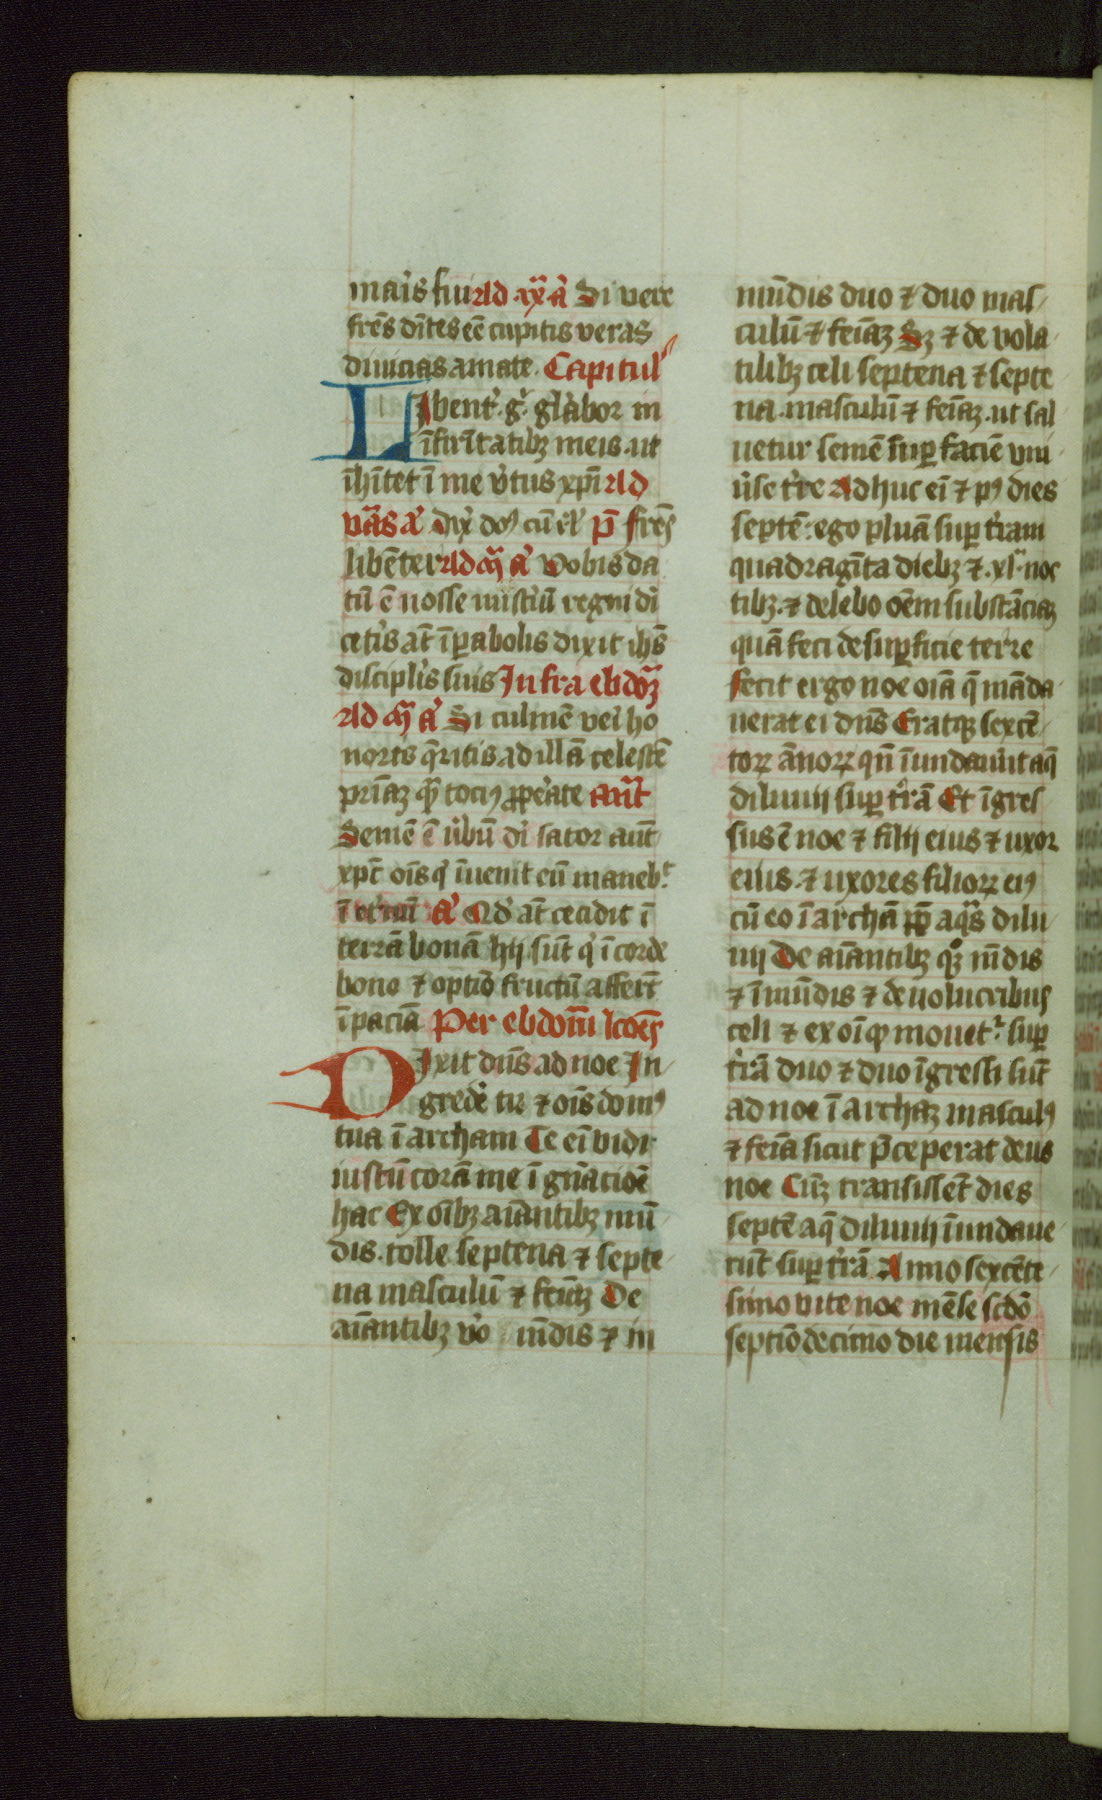 maīs sui Ad ix a᷒ Si vere
frēs dītes eē cupitis veras
diuicias amate. Capitul᷒
Libent᷒ g᷒ gl̄abor in
īfir̄tatibꝫ meis. ut
īhītet ī me v̄tus xp̄i Ad
v̄as a᷒ Dix̄ do᷒ cū el᷒ p̄ frēs
libēter Ad m̄ a᷒ Vobis da
tū ē nosse mist̄iū regni di
cet̄is āt īꝑabolis dixit ih̄s
discipl̄is suis Infra ebdōꝫ
Ad m̄ a᷒ Si culmē vei ho
noris q̄ritis ad illā celestē
pr̄iaꝫ q̄ tociꝯ ꝓpeāte an̄t
Semē ē v̄bū di sator aut̄
xp̄c oīs q᷒ īuenit eū maneb᷒t
ī et̄nū a᷒ Qd᷒ āt cecidit ī
terrā bonā hij sūt q᷒ ī corde
bono ⁊ optīo fructū affert̄
ī paciā Per ebdom̄ lc̄oēs
Dixit dn̄s ad noe In
gredē tu ⁊ oīs domꝯ
tua ī archam Te eī vidi
iustū corā me ī gn̄acioē
hac Ex oībꝫ aīantibꝫ mū
dis. tolle septena ⁊ septe
na masculū ⁊ feīaꝫ De
aīantibꝫ v̄o īmūdis ⁊ in
mūdis duo ⁊ duo mas
culū ⁊ feīaꝫ Sꝫ ⁊ de vola
tilibꝫ celi septena ⁊ septe
na masculū ⁊ feīaꝫ. ut sal
uetur semē suꝑ faciē vni
v̄se tr̄e Adhuc eī ⁊ pꝯ dies
septē. ego pluā suꝑ tr̄am
quadragīta diebꝫ ⁊ .xl. noc
tibꝫ. ⁊ delebo oēm substāciaꝫ
quā feci de suꝑficie terre
fecit ergo noe oīa q̄ māda
uerat ei dn̄s Eratqꝫ sexcē
toꝝ ānoꝝ qn̄ īundauit aq̄
diluuij suꝑ tr̄ā Et īgres
sus ē noe ⁊ filij eius ⁊ uxor
eius. ⁊ uxores filioꝝ eiꝯ
cū eo ī archā ꝓp̄ aq̄s dilu
uij De aīantibꝫ qꝫ mūdis
⁊ īmūdis ⁊ de uolucribus
celi ⁊ ex oī qd̄ mouet᷒ suꝑ
tr̄ā duo ⁊ duo īgressi sūt
ad noe ī archaꝫ masculꝯ
⁊ feīa sicut p̄ceperat deus
noe Cūqꝫ transissēt dies
septē aq̄ diluuij īundaue
rūt suꝑ tr̄ā Anno sexcēte
simo vite noe mēse scd̄o
septīo decimo die mensis